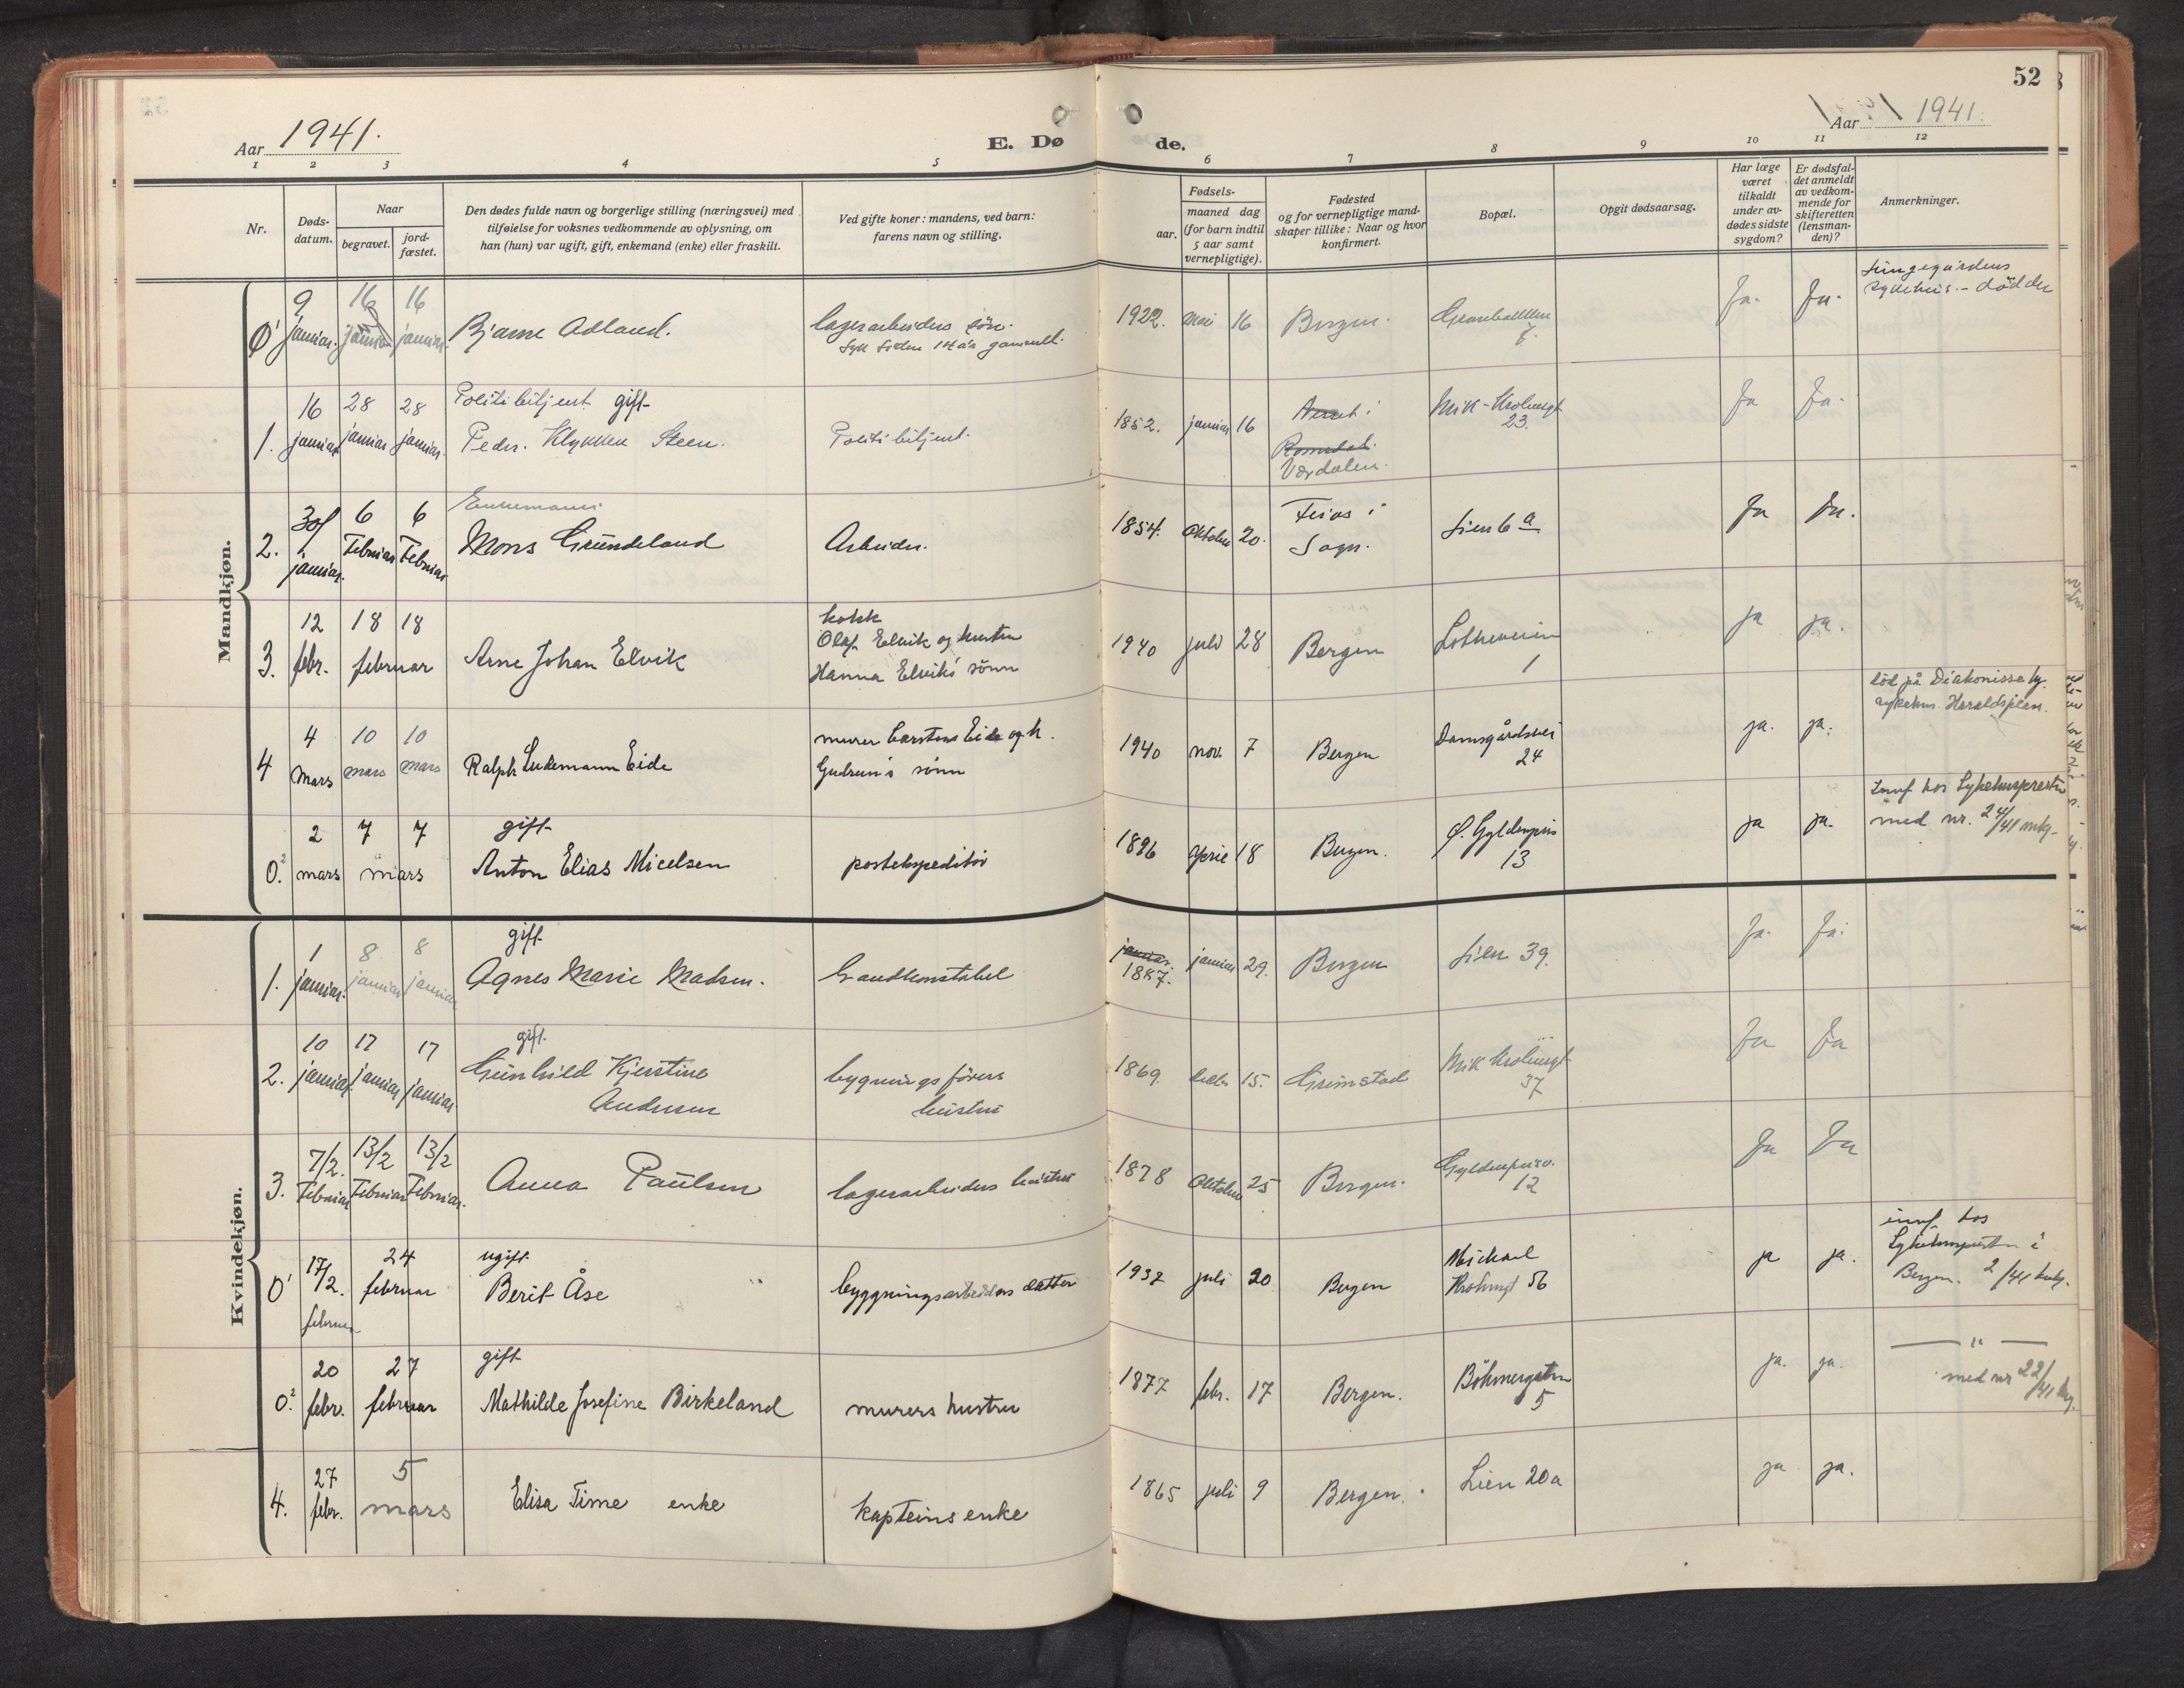 52
Aar 1941.
E. Døde.
Aar 1941.
1 2 3 4 5 6 7 8 9 10 11 12
Nr.
Døds-
datum.
Naar
begravet.
jord-
fæstet.
Den dødes fulde navn og borgerlige stilling (næringsvei) med
tilføielse for voksnes vedkommende av oplysning, om
han (hun) var ugift, gift, enkemand (enke) eller fraskilt.
Ved gifte koner: mandens, ved barn:
farens navn og stilling.
Fødsels-
aar.
maaned dag
(for barn indtil
5 aar samt
vernepligtige).
Fødested
og for vernepligtige mand-
skaper tillike: Naar og hvor
konfirmert.
Bopæl.
Opgit dødsaarsag.
Har læge
været
tilkaldt
under av-
dødes sidste
sygdom?
Er dødsfal-
det anmeldt
av vedkom-
mende for
skifteretten
(lensman-
den)?
Anmerkninger.
Mandkjøn.
0¹ 9 januar. 16 januar 16 januar. Bjarne Adland. lagerarbeiders søn.
Syk siden 14 år gammelt.
1922. mai 16 Bergen. 7. Ja. Ja.
sykehus. - död der
1. 16 januar 28 januar 28 januar. Politibetjent gift
Peder Klykken Steen. Politibetjent.
1852. januar 16 i
Romsdal.
Værdalen. Mik-Krohnsgt
23. Ja Ja.
2. 30/ januar. 6 Februar 6 Februar Enkemann.
Mons Grundeland Arbeider.
1854. Oktober 20. Feios i
Sogn. Lien 6 a Ja Ja.
3. 12 febr. 18 18 februar Arne Johan Elvik
kokk
Olaf Elvik og hustru
Hanna Elvik's sönn
1940 juli 28 Bergen 1 ja ja.
4 4 mars 10 mars 10 mars Ralph Ludemann Eide
murer Carsten Eide og h.
Gudrun's sönn
1940 nov. 7 Bergen Damsgårdsvei
24 ja. ja.
död på Diakonisse
sykehus Haraldsplan.
0.² 2 mars 7 7 mars gift
Anton Elias Micelsen postekspeditör
1896 april 18 Bergen. 13 ja ja.
Innf hos Sykehuspresten
med nr. 24/41 mkj.
Kvindekjøn.
1. 1 januar. 8 januar 8 januar gift
Agnes Marie Madsen. Brandkonstabel
januar.
1887. januar 29. Bergen Lien 39. Ja. Ja.
2. 10 januar. 17 januar 17 januar gift.
Gunhild Kjerstine
Andersen bygningsförers
hustru
1869. 15. Grimstad Mik Krohnsgt
37 Ja Ja
3. 7/2. Februar 13/2 Februar 13/2 Februar. Anna Paulsen lagerarbeiders hustru
1878 Oktober 25 Bergen. 12 Ja Ja
0¹ 17/2. februar 24 februar ugift.
Berit Åse byggningsarbeiders datter
1937 juli 20 Bergen Michael
Krohnsgt 56 ja ja.
innf. hos
Sykehuspresten i
Bergen. 2/41 kvkj.
0.² 20 febr. 27 februar gift
Mathilde Josefine Birkeland murers hustru
1877 febr. 17 Bergen. Böhmergaten
5 ja. ja.
— " —
med nr 22/41 kvkj.
4. 27 febr. 5 mars Elisa Time enke kapteins enke
1865 juli 9 Bergen. Lien 20a ja ja.